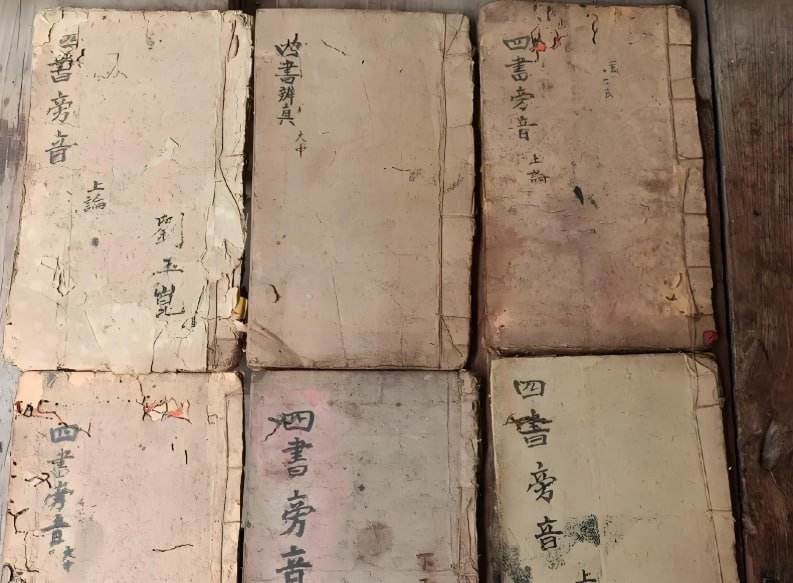 四書旁音
上論
劉玉
四書辨真
大中
四書旁音
上論
四書旁音
大中
四書旁音
四書旁音
上